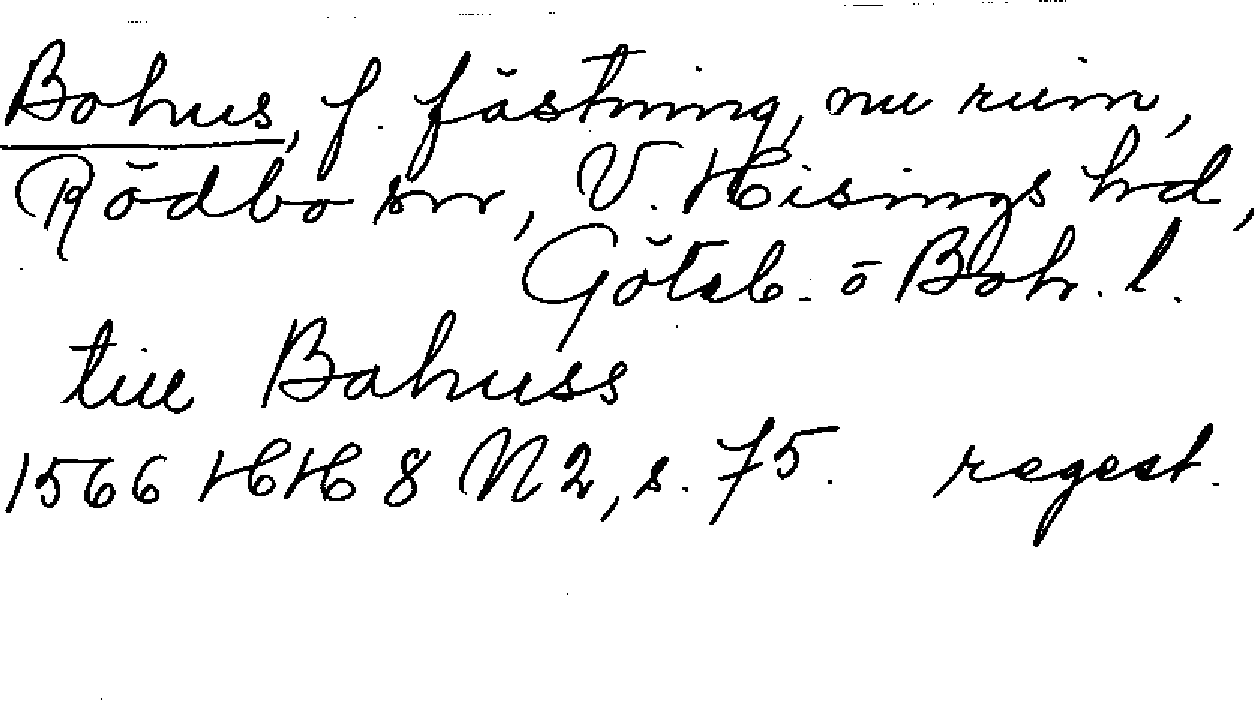 Bohus, f. fästning, nu ruin,
Rödbo sn, V. Hisings hd,
Götab. o Boh. l.
till Bahuss
1566 HH 8 N2, s. 75. regest.